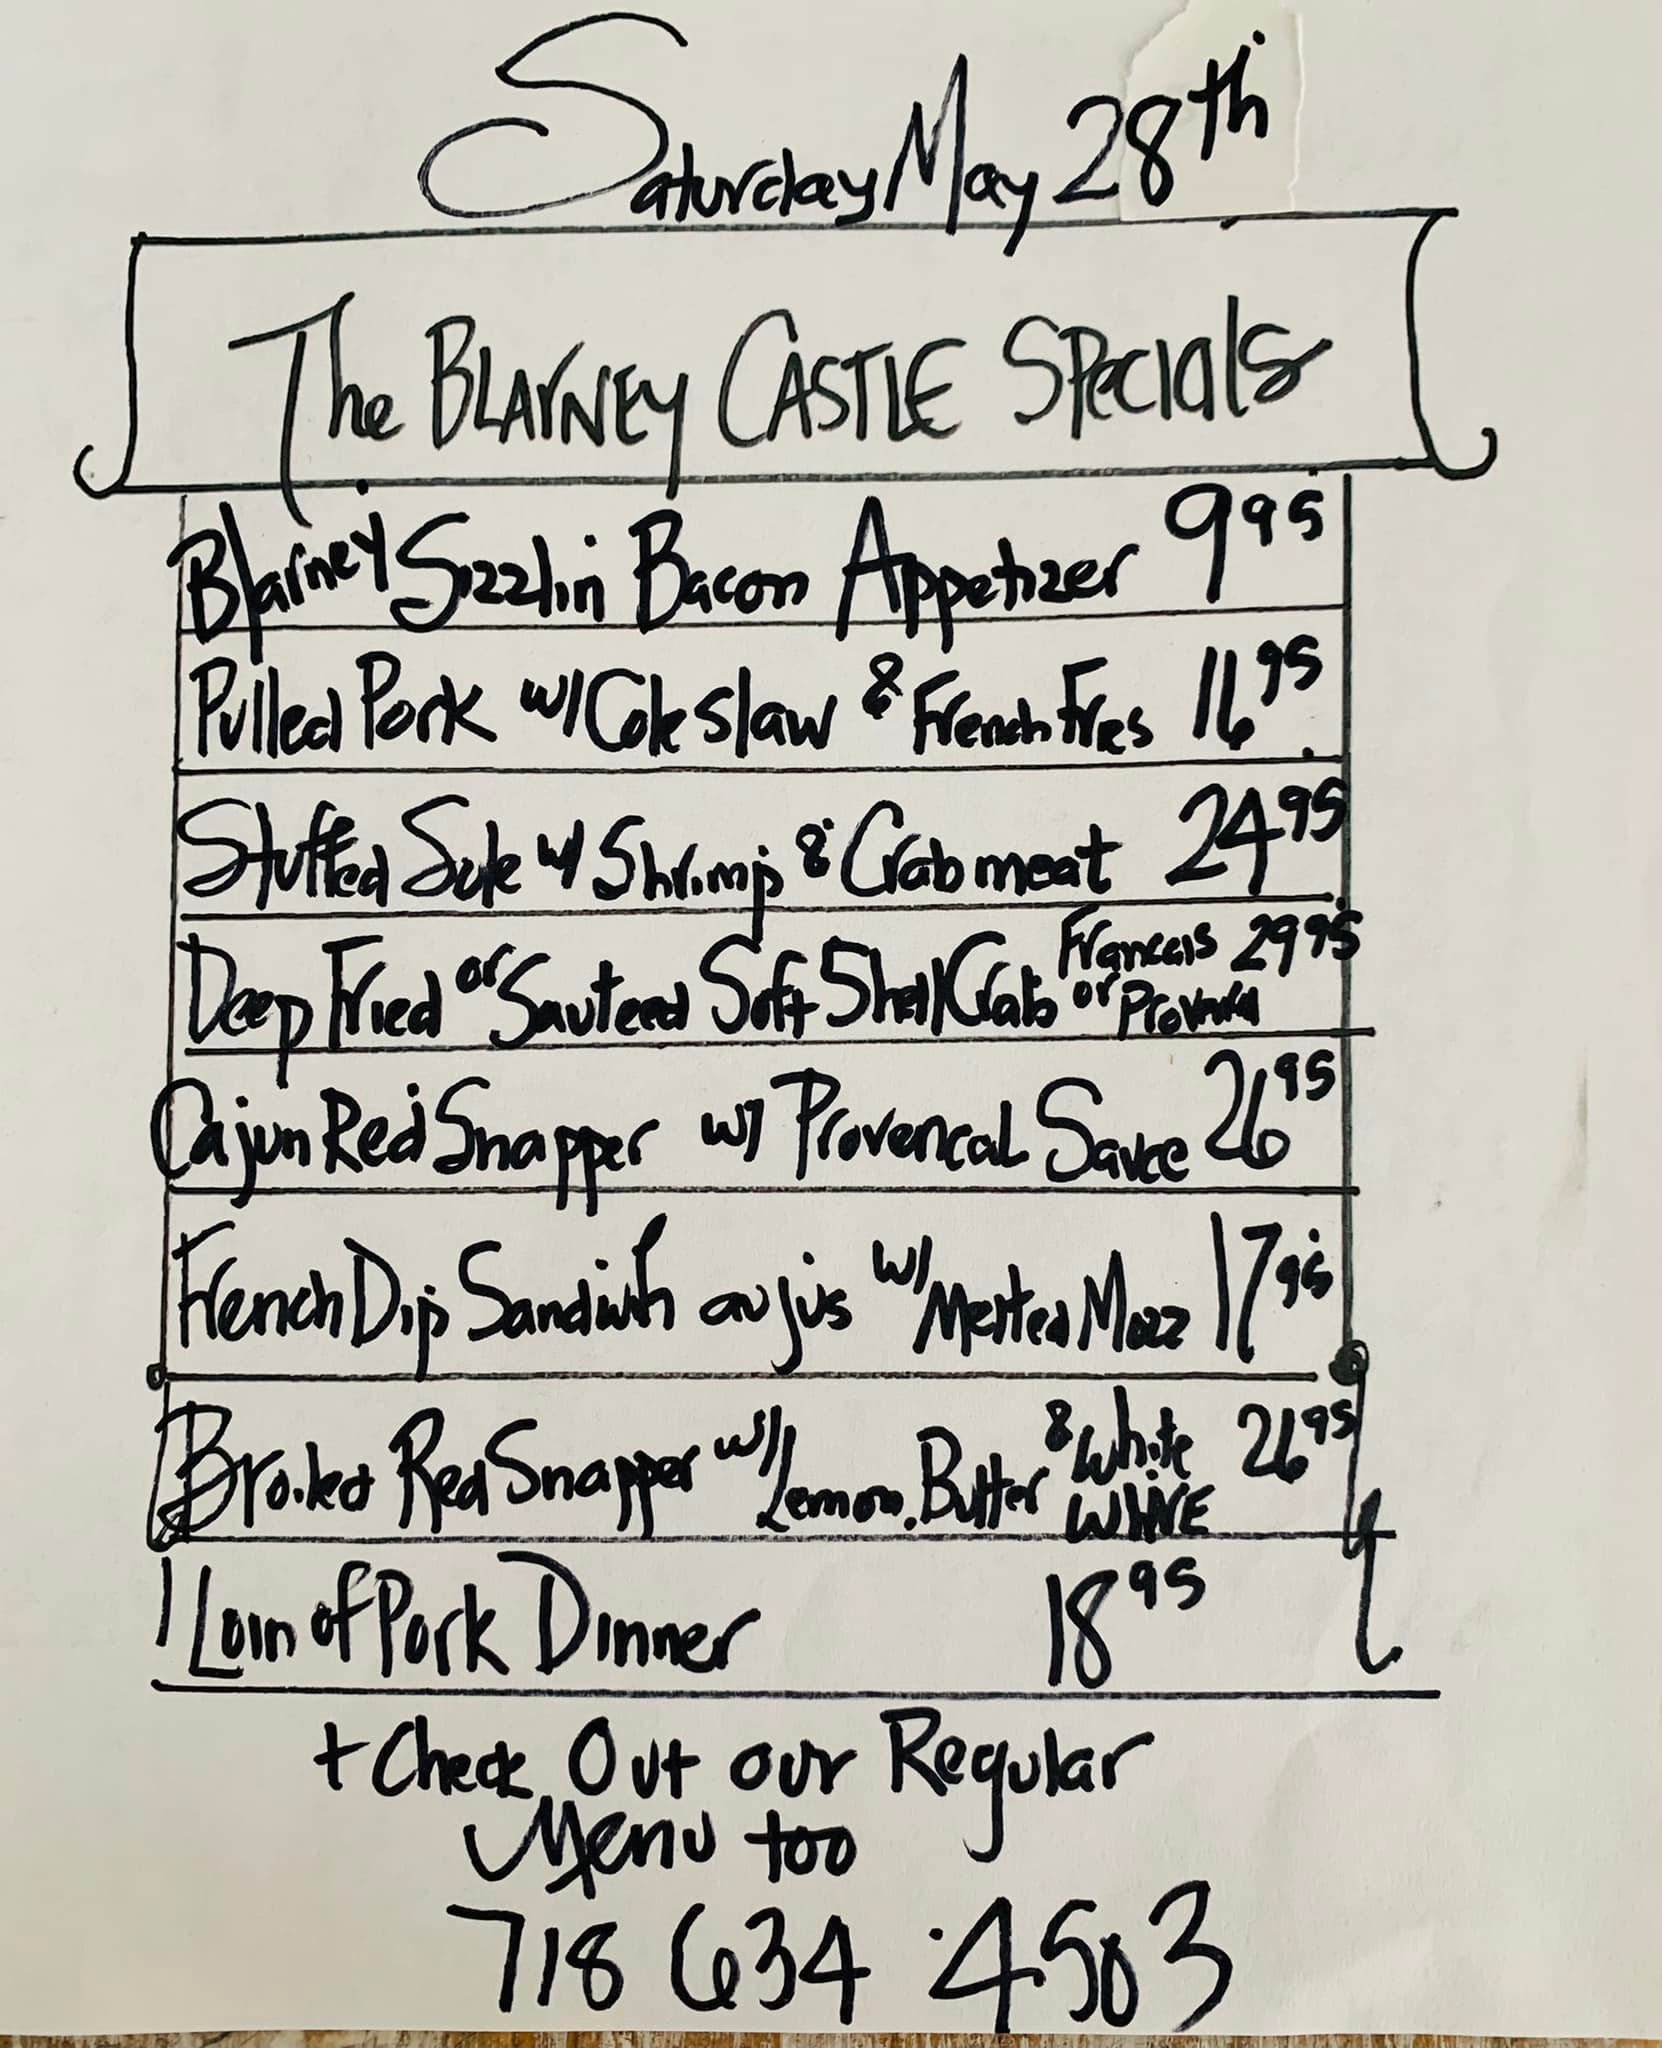 Saturday May 28th
The BLARNEY CASTLE SPecials
Blarney Sizzlin Bacon Appetizer 9 95
Pulled Pork w/ Coleslaw & French Fries 16 95
Stuffed Sole w/ Shrimp & Crabmeat 24 95
Deep Fried or Sauteed Soft Shell Crabs Francais or 29 95
Cajun Red Snapper w/ Provencal Sauce 26 95
French Dip Sandwih au jus w/ Melted Mozz 17 95
Broiled Red Snapper w/ Lemon, Butter & White WINE 26 95
Loin of Pork Dinner 18 95
+ Check Out our Regular
Menu too
718 634 · 4503